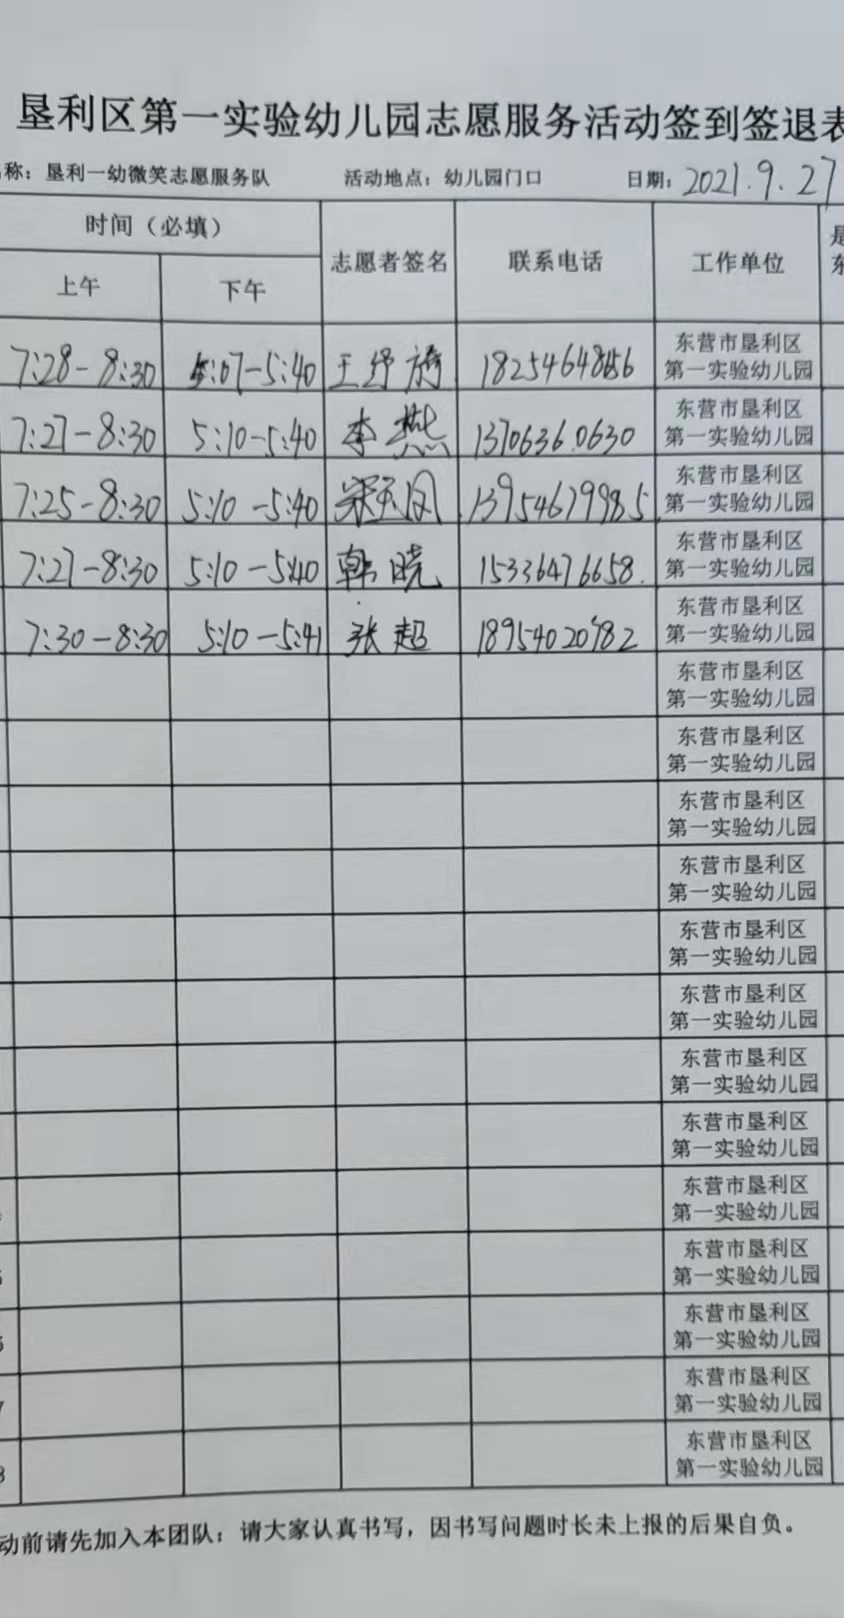 垦利区第一实验幼儿园志愿服务活动签到签退表
称：垦利一幼微笑志愿服务队 活动地点：幼儿园门口 日期：2021.9.27
时间（必填） 志愿者签名 联系电话 工作单位 是
东
上午 下午
7:28-8:30 5:07-5:40 王 18254648156 东营市垦利区
第一实验幼儿园
7:27-8:30 5:10-5:40 李燕 13706360630 东营市垦利区
第一实验幼儿园
7:25-8:30 5:10-5:40 宋玉凤 13954679985 东营市垦利区
第一实验幼儿园
7:27-8:30 5:10-5:40 韩晓 15336476658. 东营市垦利区
第一实验幼儿园
7:30-8:30 5:10-5:41 张超 18954020782 东营市垦利区
第一实验幼儿园
东营市垦利区
第一实验幼儿园
东营市垦利区
第一实验幼儿园
东营市垦利区
第一实验幼儿园
东营市垦利区
第一实验幼儿园
东营市垦利区
第一实验幼儿园
东营市垦利区
第一实验幼儿园
东营市垦利区
第一实验幼儿园
东营市垦利区
第一实验幼儿园
东营市垦利区
第一实验幼儿园
东营市垦利区
第一实验幼儿园
东营市垦利区
第一实验幼儿园
7 东营市垦利区
第一实验幼儿园
8 东营市垦利区
第一实验幼儿园
动前请先加入本团队；请大家认真书写，因书写问题时长未上报的后果自负。